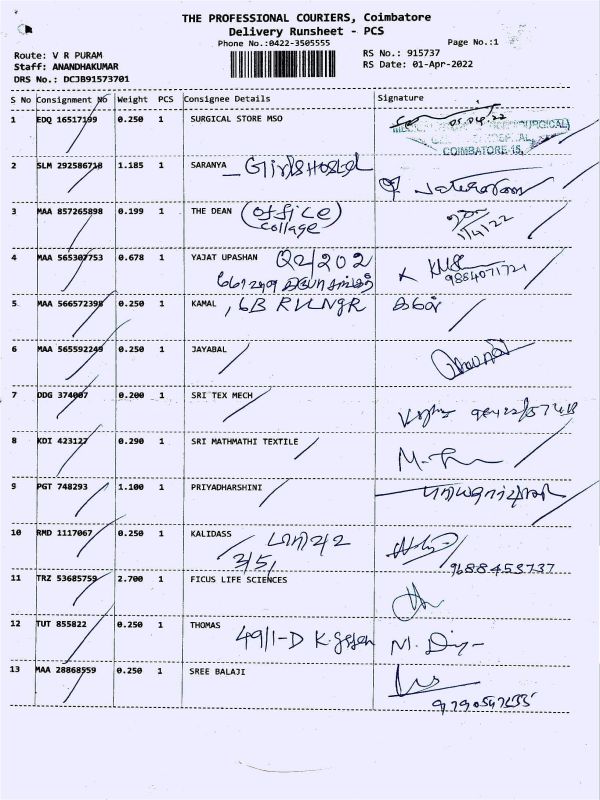 THE PROFESSIONAL COURIERS, Coimbatore
Delivery Runsheet - PCS
Phone No.:0422-3505555
Page No.:1
Route: V R PURAM
RS No.: 915737
Staff: ANANDHAKUMAR
RS Date: 01-Apr-2022
DRS No.: DCJB91573701
S No Consignment No Weight PCS Consignee Details Signature
1 EDQ 16517199 0.250 1 SURGICAL STORE MSO
COIMBATORE
2 SLM 292586718 1.185 1 SARANYA Girls Hostel
3 MAA 857265898 0.199 1 THE DEAN (office
collage)
1/4/22
4 MAA 565307753 0.678 1 YAJAT UPASHAN Q2/202
9884071721
5 MAA 566572398 0.250 1 KAMAL , 6B
6 MAA 565592249 0.250 1 JAYABAL
7 DDG 374007 0.200 1 SRI TEX MECH
8 KDI 423127 0.290 1 SRI MATHMATHI TEXTILE
9 PGT 748293 1.100 1 PRIYADHARSHINI
10 RMD 1117067 0.250 1 KALIDASS
3/5,
9688453737
11 TRZ 53685759 2.700 1 FICUS LIFE SCIENCES
12 TUT 855822 0.250 1 THOMAS 49/1-D
13 MAA 28868559 0.250 1 SREE BALAJI